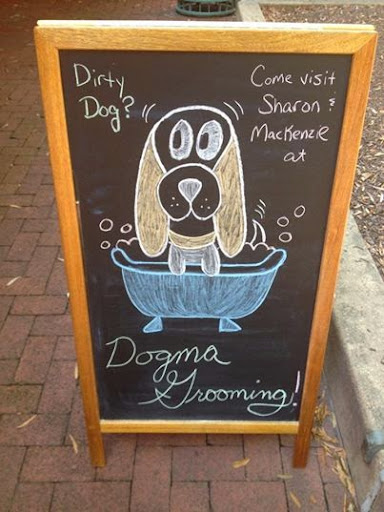 Dirty
Dog?
Come visit
Sharon &
MacKenzie
at
Dogma
Grooming!